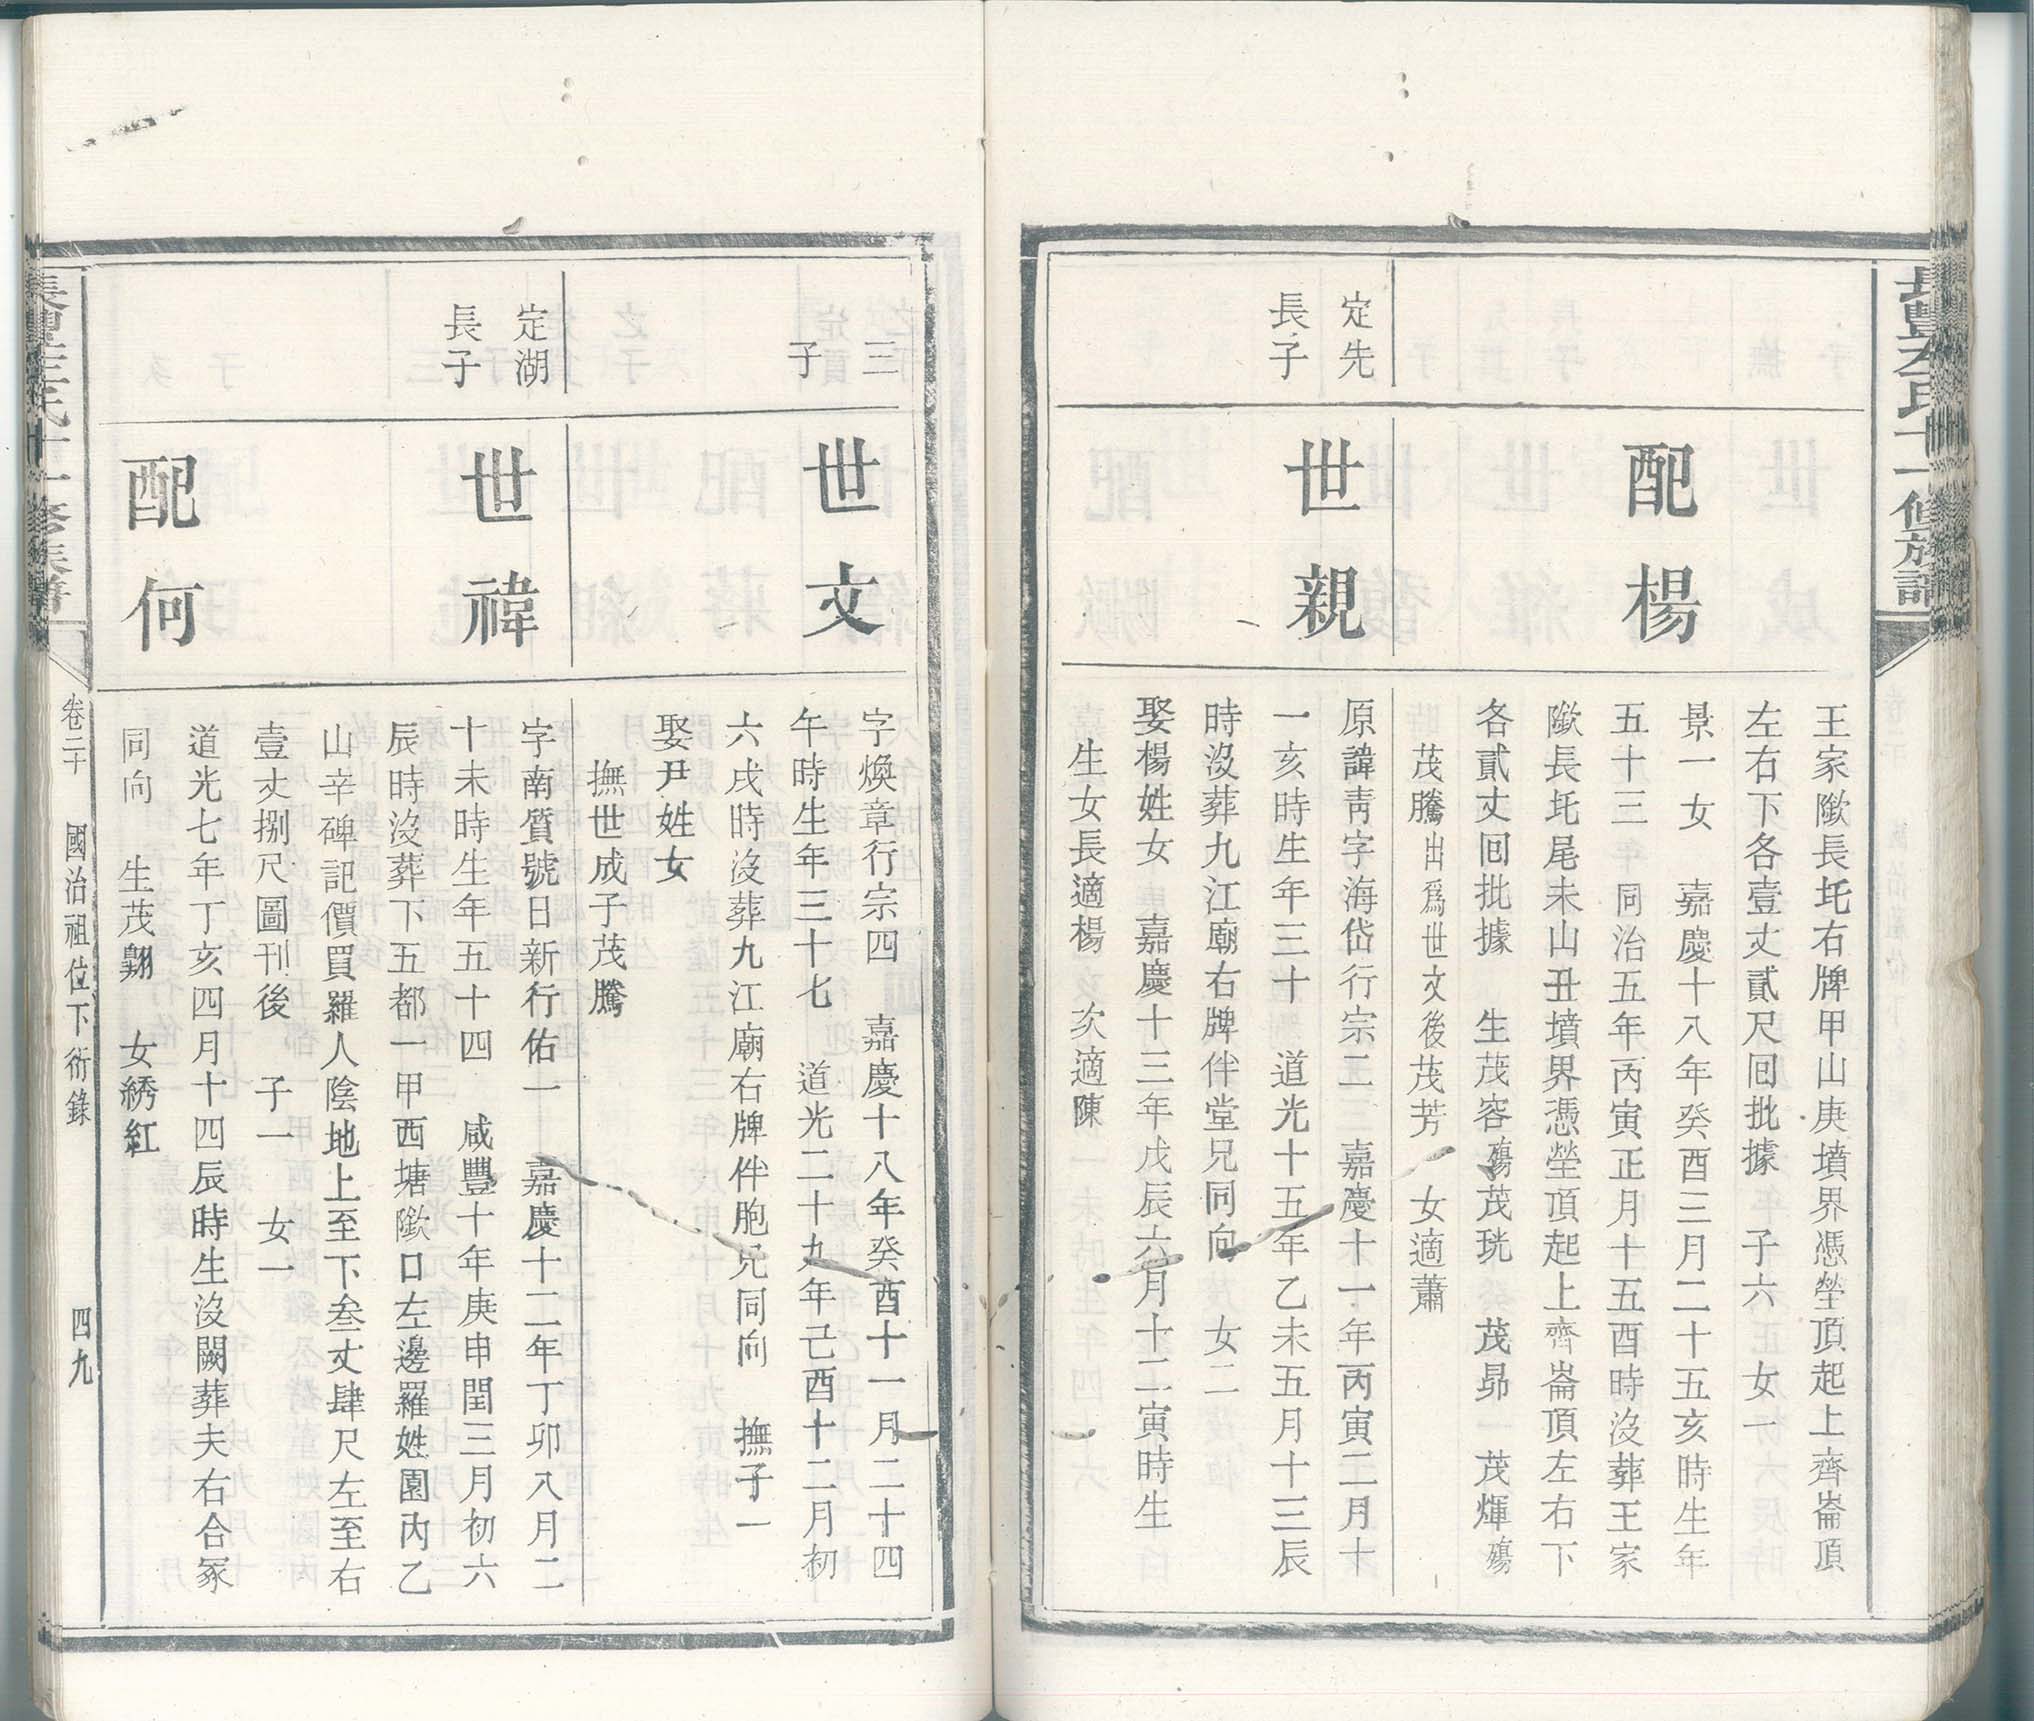 長豐左氏十一修族譜
配楊
王家歘長圫右牌甲山庚墳界憑塋頂起上齊崙頂
左右下各壹丈貳尺囘批據　子六　女一
景一女　嘉慶十八年癸酉三月二十五亥時生年
五十三　同治五年丙寅正月十五酉時沒葬王家
歘長圫尾未山丑墳界憑塋頂起上齊崙頂左右下
各貳丈囘批據　生茂容殤茂珖　茂昴　茂煇殤
茂騰出爲世文後茂芳　女適蕭
定先
長子
世親
原諱靑字海岱行宗二　嘉慶十一年丙寅二月十
一亥時生年三十　道光十五年乙未五月十三辰
時沒葬九江廟右牌伴堂兄同向　女二
娶楊姓女　嘉慶十三年戊辰六月十二寅時生
生女長適楊　次適陳
三
子
世文
字煥章行宗四　嘉慶十八年癸酉十一月二十四
午時生年三十七　道光二十九年己酉十二月初
六戌時沒葬九江廟右牌伴胞兄同向　撫子一
娶尹姓女
撫世成子茂騰
定湖
長子
世禕
字南質號日新行佑一　嘉慶十二年丁卯八月二
十未時生年五十四　咸豐十年庚申閏三月初六
辰時沒葬下五都一甲西塘歘口左邊羅姓園內乙
山辛碑記價買羅人陰地上至下叁丈肆尺左至右
壹丈捌尺圖刊後　子一　女一
配何
道光七年丁亥四月十四辰時生沒闕葬夫右合冢
同向　生茂翾　女綉紅
長豐左氏十一修族譜
卷二十　國治祖位下衍錄　四九